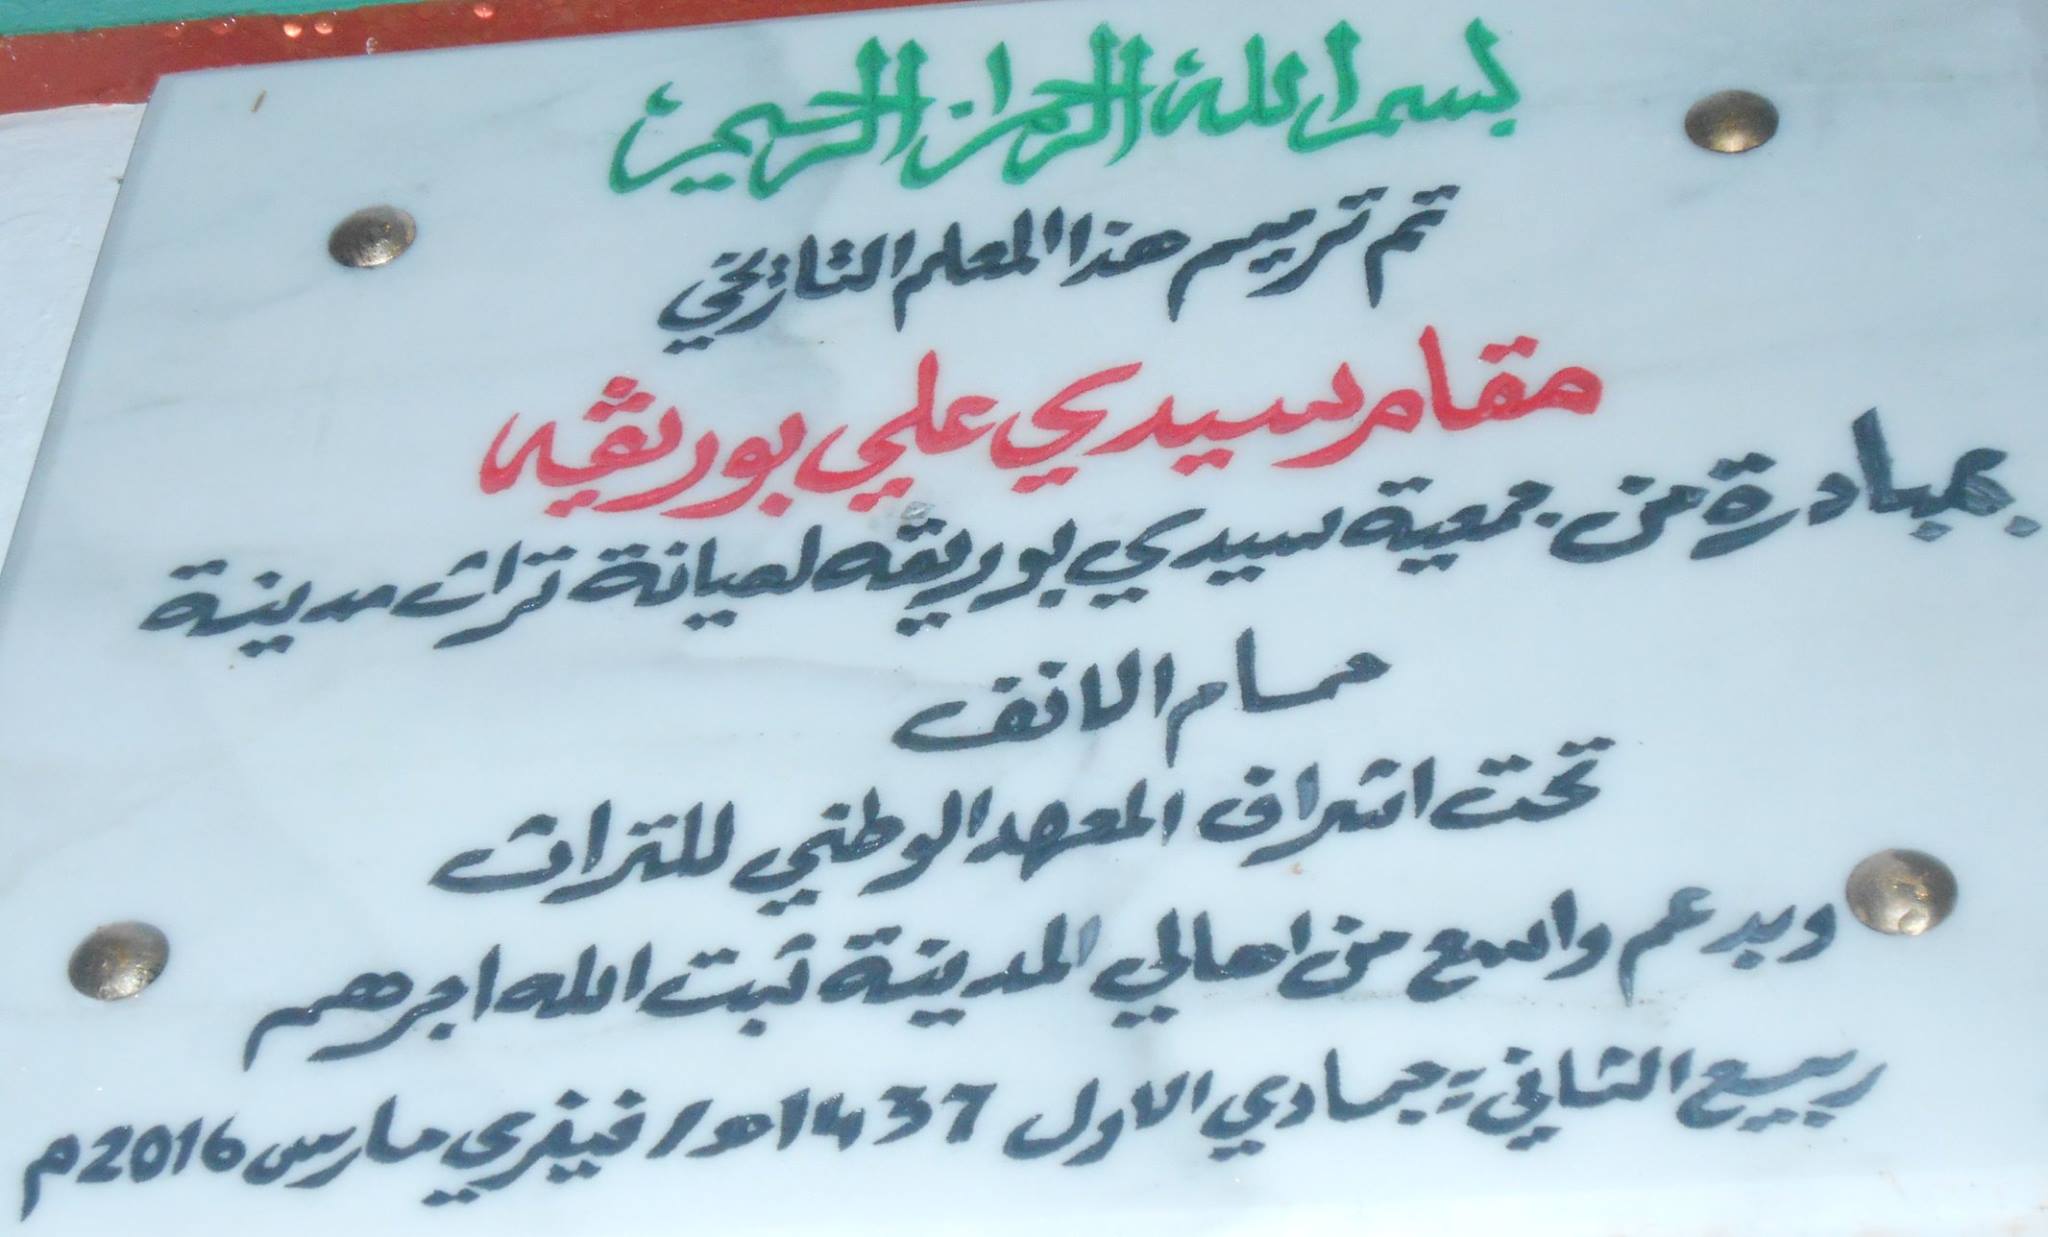 بسم الله الرحمان الرحيم
تم ترميم هذا المعلم التاريخي
مقام سيدي علي بوريڨه
بمبادرة من جمعية سيدي بوريڨه لصيانة تراث مدينة
حمام الانف
تحت اشراف المعهد الوطني للتراث
وبدعم واسع من اهالي المدينة ثبت الله اجرهم
ربيع الثاني - جمادي الاول 1437هـ / فيفري مارس 2016م